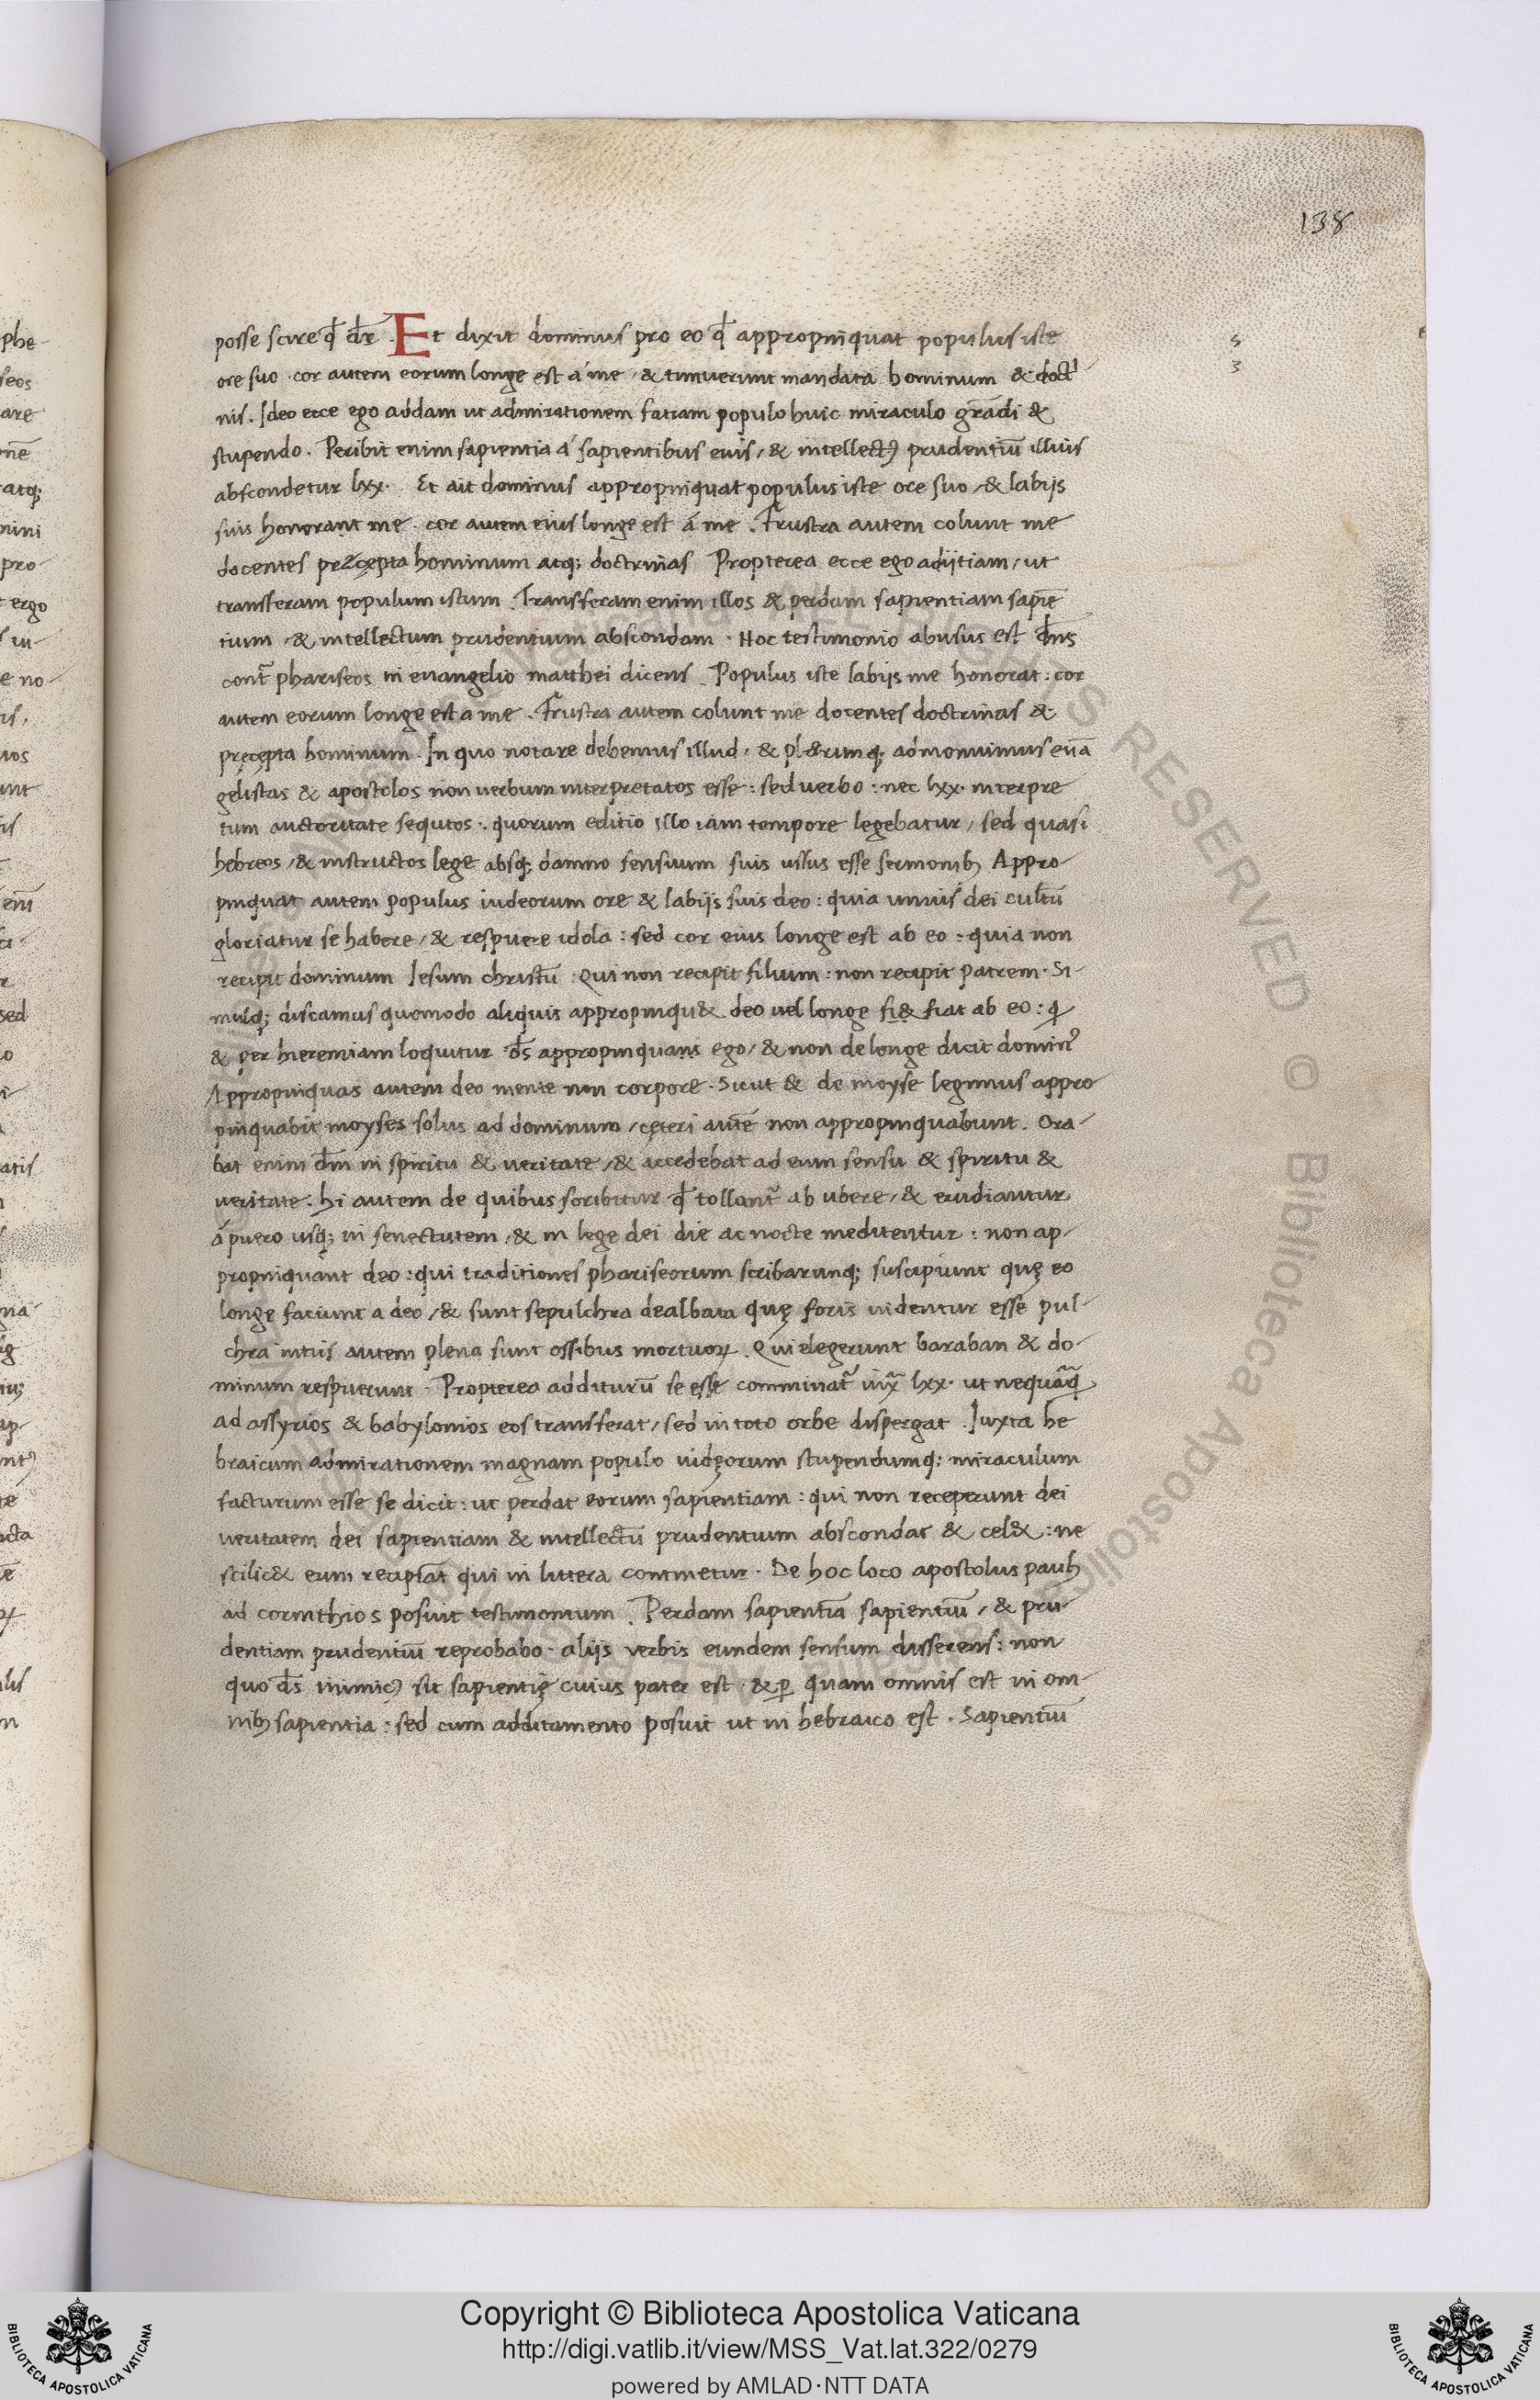 138
posse scire qđ dr̄. Et dixit dominus pro eo qđ appropinquat populus iste
ore suo . cor autem eorum longe est á me / & timuerunt mandata hominum & doctⁱ
nis. Ideo ecce ego addam ut admirationem faciam populo huic miraculo grādi &
stupendo. Peribit enim sapientia á sapientibus euis / & intellectꝰ prudentiū illius
abscondetur lxx. Et ait dominus appropinquat populus iste ore suo / & labijs
suis honorant me . cor autem eius longe est á me . Frustra autem colunt me
docentes precepta hominum atq; doctrinas Propterea ecce ego adijtiam / ut
transferam populum istum . Transferam enim illos & perdam sapientiam sapiē
tium / & intellectum prudentium abscondam . Hoc testimonio abusus est dn̄s
contr̄ phariseos in euangelio matthei dicens . Populus iste labijs me honorat : cor
autem eorum longe est a me . Frustra autem colunt me docentes doctrinas &
pręcepta hominum . In quo notare debemus illud . & pl&rumq; admonuimus euā
gelistas & apostolos non uerbum interpretatos esse : sed uerbo : nec lxx. interpre
tum auctoritate sequtos . quorum editio illo iam tempore legebatur / sed quasi
hebreos / & instructos lege absq; damno sensuum suis usus esse sermonibꝫ Appro-
pinquat autem populus iudeorum ore & labijs suis deo : quia unius dei cultū
gloriatur se habere / & respuere idola : sed cor eius longe est ab eo : quia non
recipit dominum Iesum christū . Qui non recipit filium : non recipit patrem . Si-
mulq; discamus quomodo aliquis appropinqu& deo uel longe fi& fiat ab eo : ꝙ
& per hieremiam loquitur . ds̄ appropinquans ego / & non de longe dicit dominꝰ
Appropinquas autem deo mente non corpore . Sicut & de moyse legimus appro
pinquabit moyses solus ad dominum / cęteri autē non appropinquabunt . Ora-
bat enim dm̄ in spiritu & ueritate / & accedebat ad eum sensu & spiritu &
ueritate . hi autem de quibus scribitur qđ tollantr̄ ab ubere / & erudiantur
á puero usq; in senectutem / & in lege dei die ac nocte meditentur : non ap-
propinquant deo : qui traditiones phariseorum scribarumq; suscipiunt quę eo
longe faciunt a deo / & sunt sepulchra dealbata quę foris uidentur esse pul-
chra intus autem plena sunt ossibus mortuoꝝ . Qui elegerunt baraban & do-
minum respuerunt . Propterea additurū se esse comminatr̄ iux̄ lxx. ut nequāq̄
ad assyrios & babylonios eos transferat / sed in toto orbe dispergat . Iuxta he
braicum admirationem magnam populo iudęorum stupendumq; miraculum
facturum esse se dicit : ut perdat eorum sapientiam : qui non receperunt dei
ueritatem dei sapientiam & intellectū prudentium abscondat & cel& : ne
scilic& eum recipiāt qui in littera continetur . De hoc loco apostolus paulꝫ
ad corinthios posuit testimonium . Perdam sapientiā sapientiū / & pru-
dentiam prudentiū reprobabo . alijs verbis eundem sensum disserens : non
quo ds̄ inimicꝰ sit sapientię cuius pater est . & ꝑ quam omnis est in om-
nibꝫ sapientia : sed cum additamento posuit ut in hebraico est . Sapientiū
Copyright © Biblioteca Apostolica Vaticana
http://digi.vatlib.it/view/MSS_Vat.lat.322/0279
powered by AMLAD·NTT DATA